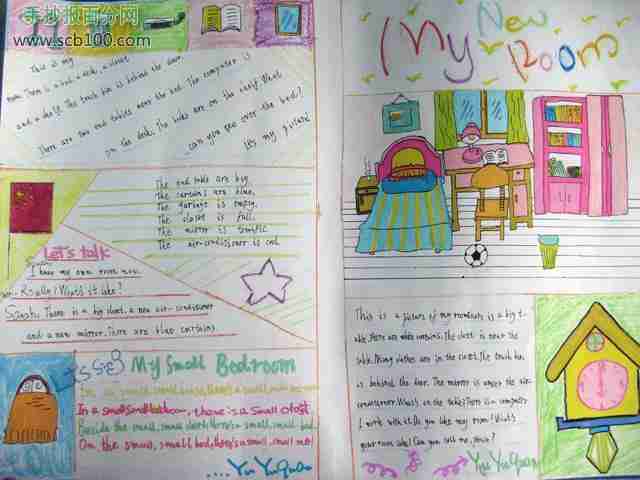 手抄报百分网
www.scb100.com
This is my
room. There is a bed, a desk, a closet
and a shelf. The trash bin is behind the door.
There are two end tables near the bed. The computer is
on the desk. The books are on the shelf. What
can you see over the bed?
It's my picture
The end table are big.
The curtains are blue.
The garbage is empty.
The closet is full.
The mirror is
The air-conditioner is cool
Let's talk
I have my own room now.
Really! What's it like?
Sarah: There is a big closet, a new air-conditioner
and a new mirror. There are blue curtains.
My Small Bedroom
In a small, small house, there's a small
In a small small bedroom, there is a small closet.
Beside the small, small closet, there's a small, small bed.
On the small, small bed, there's a small, small me!
.... Yu YuQuan
My New Room
This is a picture of my room. There is a big
There are The closet is near the
table. Many clothes are in the closet. The trash bin
is behind the door. The mirror is above the air-
conditioner. What's on the table? There is a computer
I work with it. Do you like my room? What's
your room like? Can you tell me,
Yu YuQuan